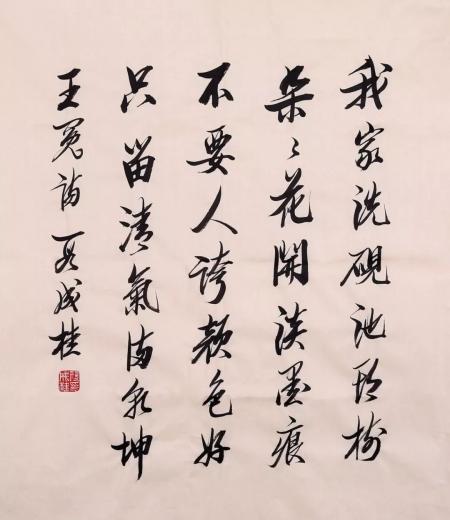 我家洗硯池頭樹
朵々花開淡墨痕
不要人誇顏色好
只留清氣滿乾坤
王冕詩 段成桂